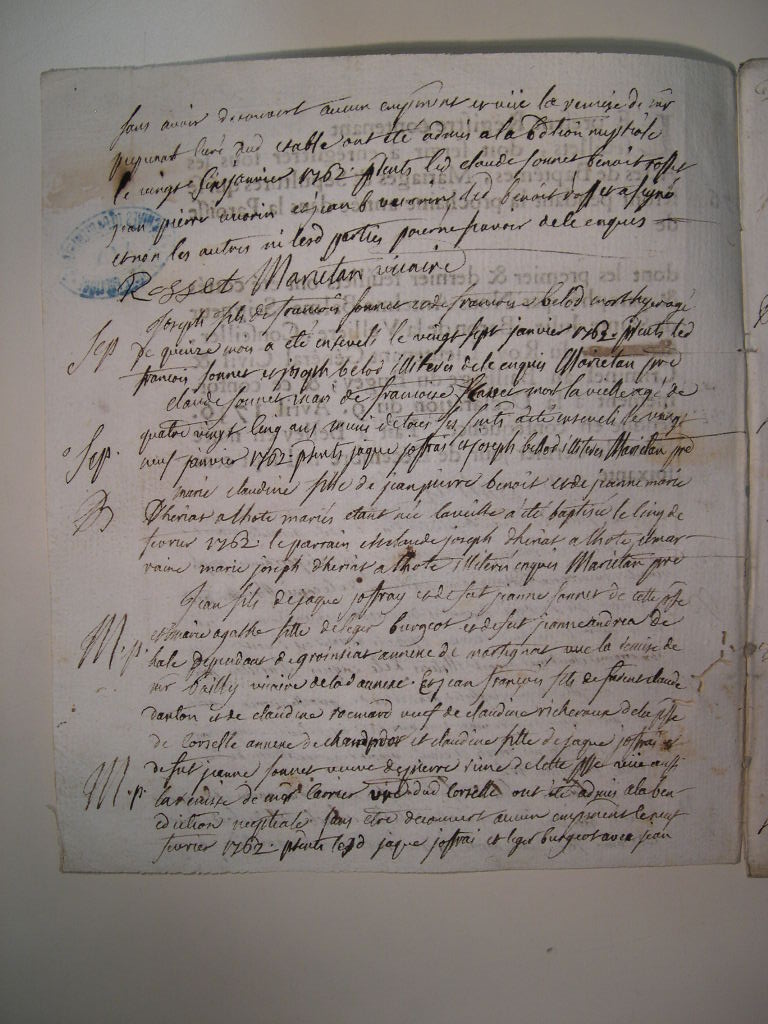 sans avoir decouvert aucun empment et vüe la remise de mr
curé dud estable ont été admis a la bdtion nuptiale
le vingt janvier 1762. pnts led claude sonnet benoit rosset
jean pierre et jean b led benoit rosset a signé
et non les autres ni lesd parties pour ne sçavoir de ce enquis
Rosset Marietan vicaire
Sep Joseph fils de francois sonnet et de francoise belod mort hyer agé
de quinze mois a été enseveli le vingt sept janvier 1762. pnts led
francois sonnet et joseph belod illiterés de ce enquis Marietan pre
claude sonnet mari de francoise mort la veille agé de
Sep. quatre vingt cinq ans muni de tous ses a été enseveli le vingt
neuf janvier 1762. pnts jaque joffrai et joseph belod illiteres Marietan pre
B marie claudine fille de jean pierre benoit et de jeanne marie
Dheriat alhote mariés etant née la veille a été baptisée le cinq de
fevrier 1762. le parrain est claude joseph dheriat alhote, et mar-
raine marie joseph dheriat alhote illiterés enquis Marietan pre
Jean fils de jaque joffray et de fut jeanne sonnet de cette psse
M. p. et marie agathe fille de leger burgeot et de fut jeanne andrea de
hale dependant de groissiat annexe de martignat vue la remise de
mr bailly vicaire de lad annexe. Et jean francois fils de claude
danton et de claudine veuf de claudine de la psse
de Corcelle annexe de champdor et claudine fille de jaque joffrai et
M. p. de fut jeanne sonnet veuve de pierre de cette psse vüe aussi
la remise de mr Carrier dud Corcelle ont été admis a la ben-
ediction nuptiale sans etre decouvert aucun empment le
fevrier 1762. pnts lesd jaque joffrai et leger burgeot avec jean